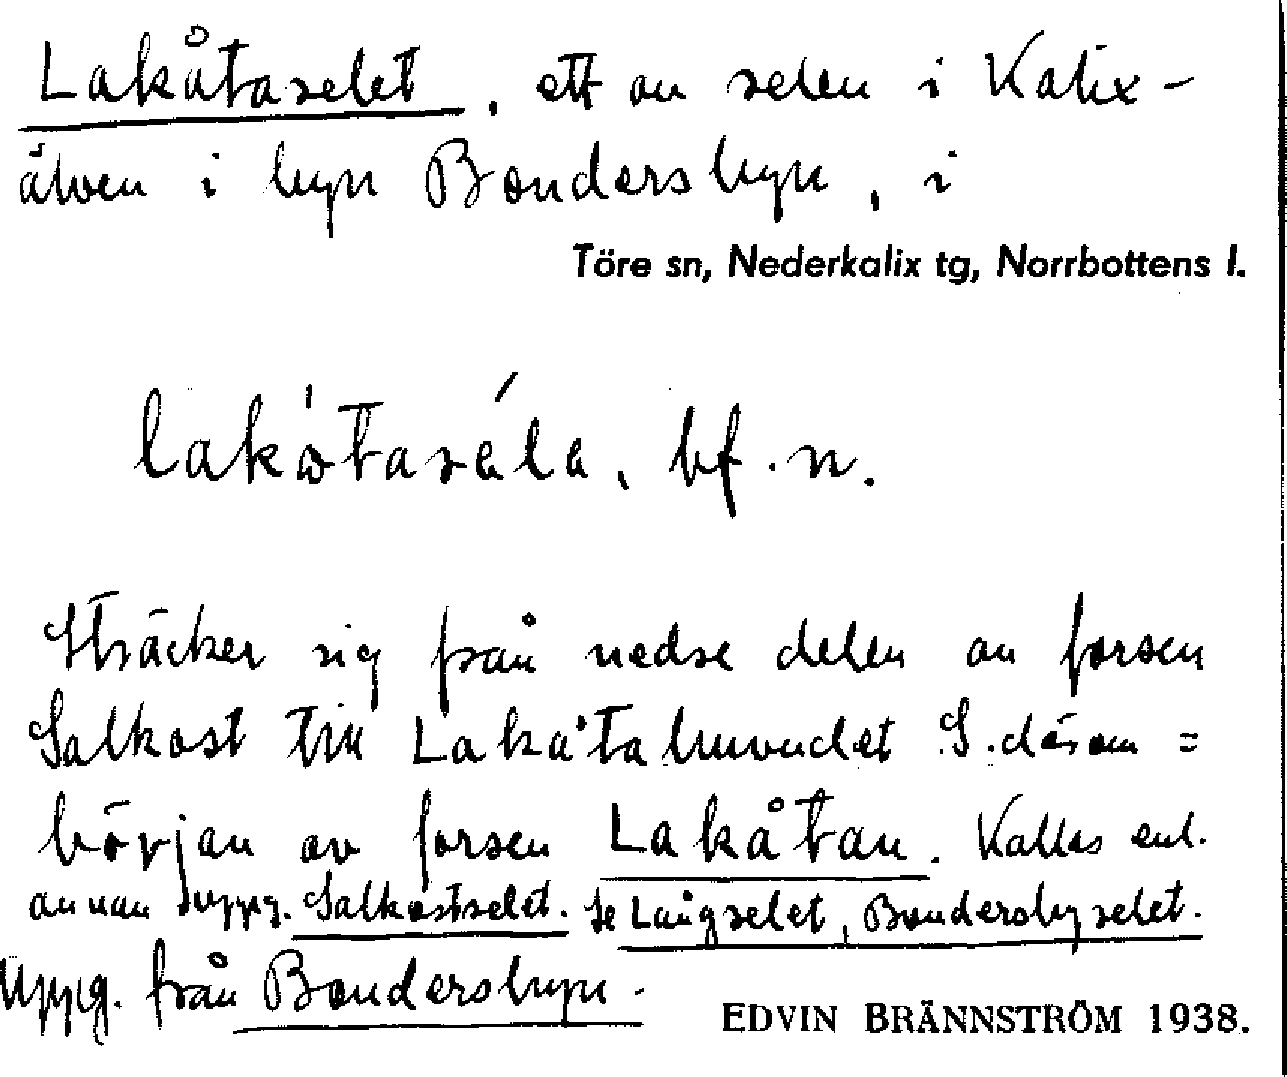 Lakåtaselet, ett av selen i Kalix-
älven i byn Bondersbyn, i
Töre sn, Nederkalix tg, Norrbottens l.
lakåtaséla, bf. n.
Sträcker sig från nedre delen av forsen
Salkost till Lakåtahuvudet S. därom =
början av forsen Lakåtan. Kallas enl.
annan uppg. Salkostselet. Se Långselet, Bondersbyselet.
Uppg. från Bondersbyn.
EDVIN BRÄNNSTRÖM 1938.